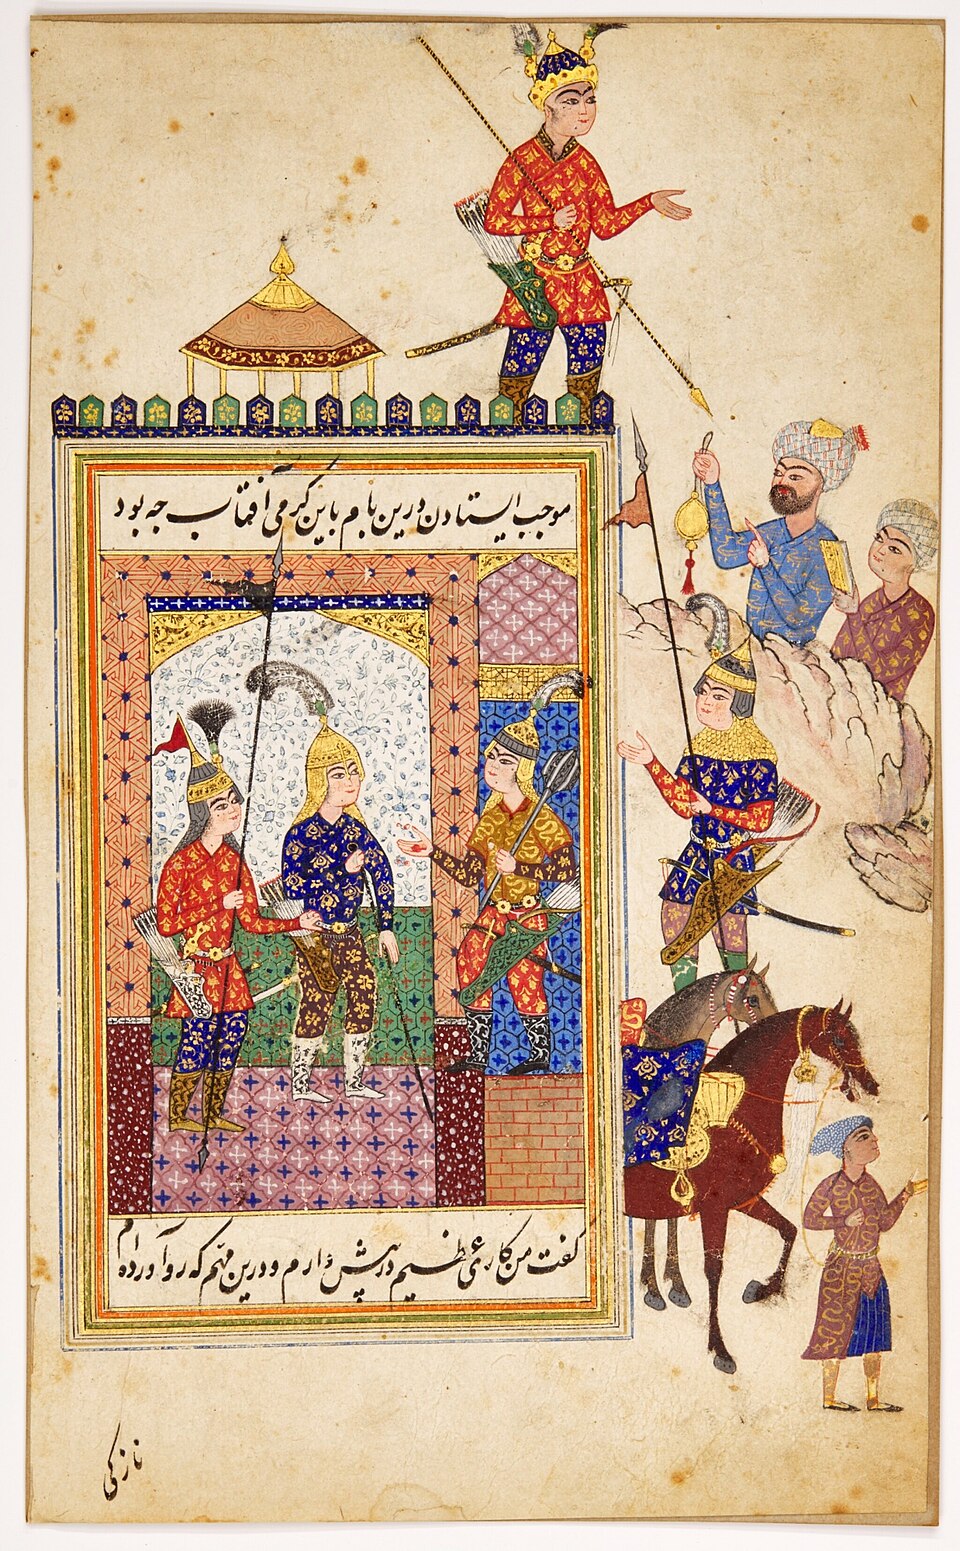 موجب ایستادن درین بام باین گرمی آفتاب جه بود
گفت من کاری عظیم در پیش دارم و درین مهم که رو آورده‌ام
نازکی